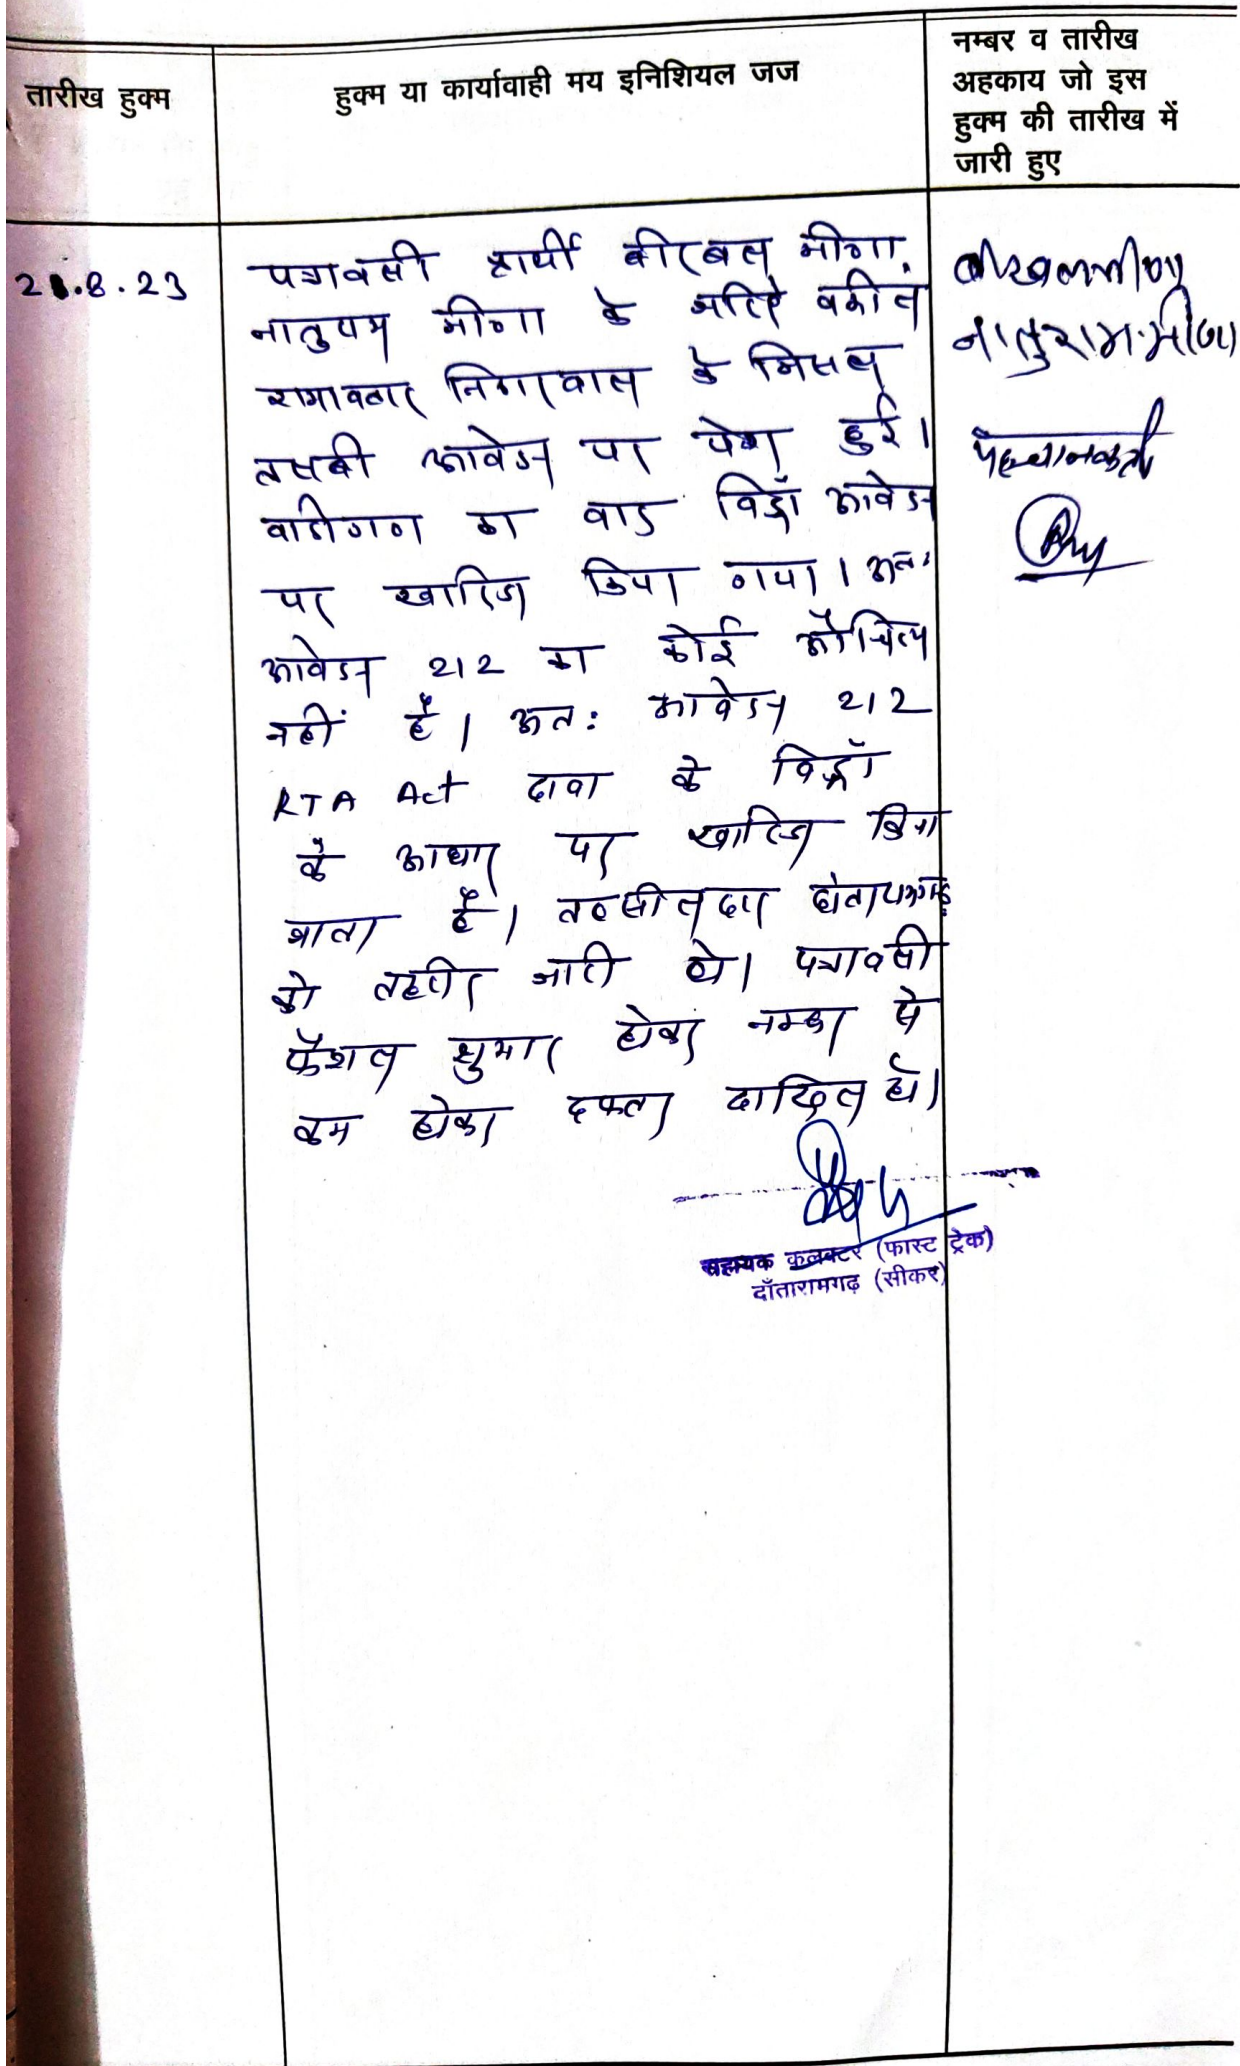 तारीख हुक्म
हुक्म या कार्यावाही मय इनिशियल जज
नम्बर व तारीख
अहकाय जो इस
हुक्म की तारीख में
जारी हुए
21.8.23
पत्रावली प्रार्थी बीरबल मीणा,
नातुराम मीणा के जरिये वकील
रामावतार निगरवाल के मिसल
तलबी आवेदन पर पेश हुई।
वादीगण का वाद विड्रॉ आवेदन
पर खारिज किया गया। अतः
आवेदन 212 का कोई औचित्य
नहीं है। अतः आवेदन 212
RTA Act दावा के विड्रॉ
के आधार पर खारिज किया
जाता है। तहसीलदार दांतारामगढ़
को तहरीर जारी हो। पत्रावली
फैशल शुमार होकर नम्बर से
कम होकर दफ्तर दाखिल हो।
बीरबल मीणा
नातुराम मीणा
पहचानकर्ता
सहायक कलक्टर (फास्ट ट्रेक)
दाँतारामगढ़ (सीकर)